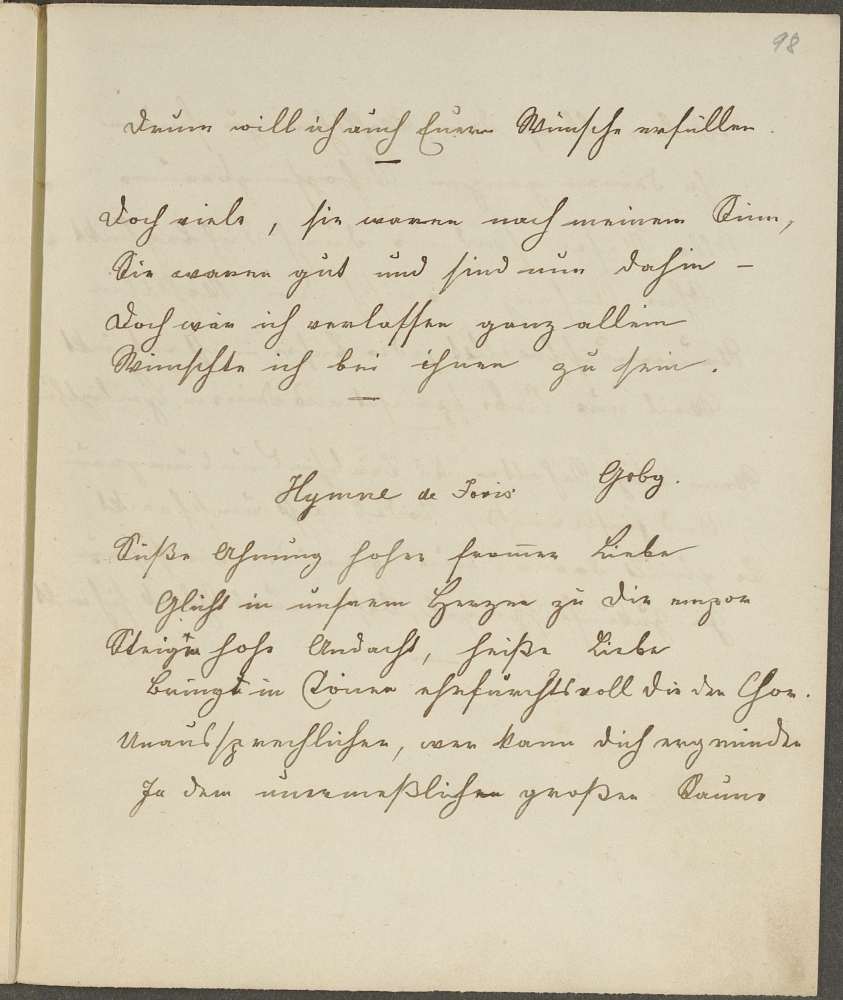 98
Drum will ich auch Euern Wünsche erfüllen.
Doch viele, sie waren nach meinem Sinn,
Sie waren gut und sind nun dahin –
Doch wär ich verlassen ganz allein
Wünschte ich bei ihnen zu sein.
Hymne de
Süße Ahnung hoher frommer Liebe
Glüht in unsrem Herzen zu Dir empor
Steigen hohe Andacht, heiße Liebe
Bringt in Tönen ehrfurchtsvoll Dir der Chor.
Unaussprechlicher, wer kann dich ergründen
In dem unermeßlichen großen Raume